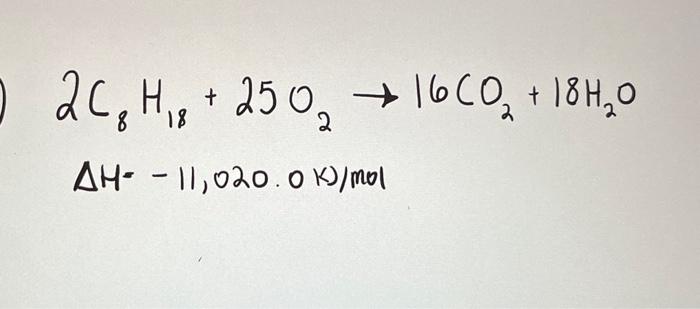 ) 2C₈H₁₈ + 25O₂ → 16CO₂ + 18H₂O
ΔH= -11,020.0 KJ/mol